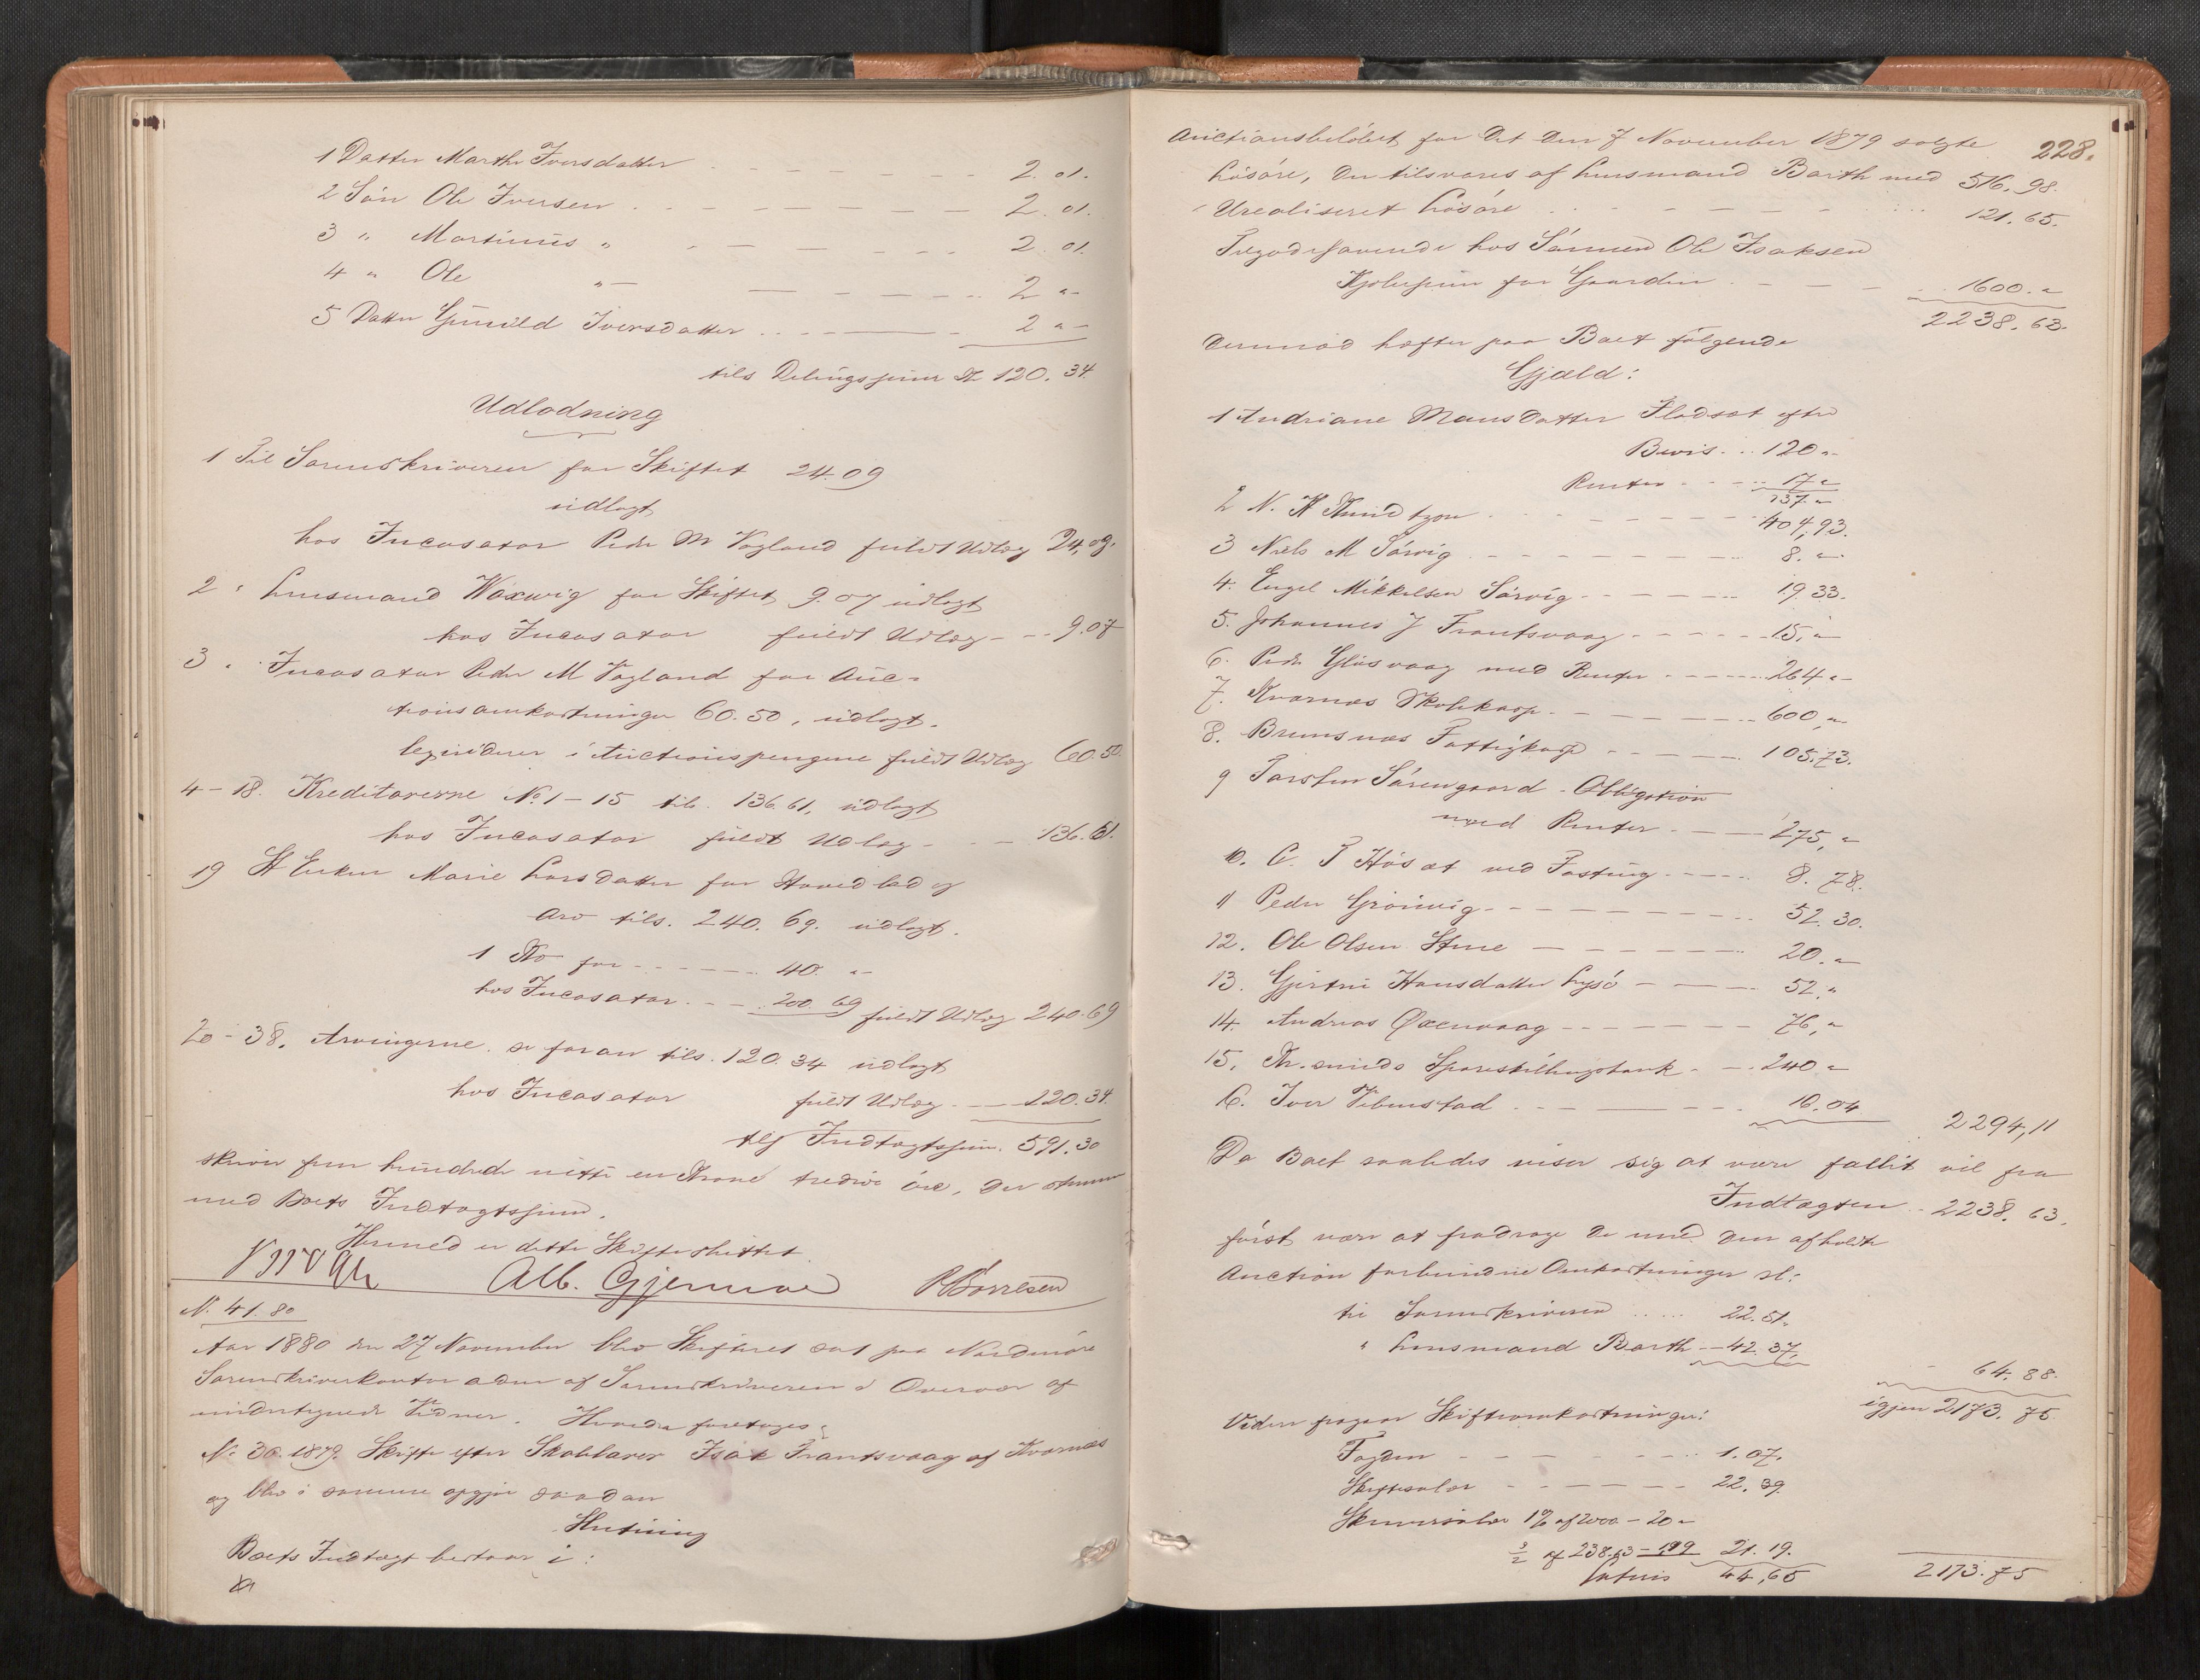 1 Datter Marthe Iversdatter - - - - - 2. 01.
2 Søn Ole Iversen - - - - - 2. 01.
3 " Martinus " - - - - - 2. 01.
4 " Ole " - - - - - 2 " -
5 Datter Gunild Iversdatter - - - - - 2 " -
tils Delingssum Kr 120. 34.
Udlodning
1 Til Sorenskriveren for Skiftet 24.09
udlagt
hos Incasator Peder M Vagland fuldt Udlæg 24,09.
2 " Lensmand Waxwig for Skiftet 9.07 udlagt
hos Incasator fuldt Udlæg - - 9.07
3 . Incasator Peder M Vagland for Auc-
tionsomkostninger 60.50, udlagt
legviderer i Auctionspengene fuldt Udlæg 60.50
4-18. Kreditorerne No 1-15 tils. 136.61, udlagt
hos Incasator fuldt Udlæg - - 136.61.
19 Enken Marie Larsdatter for Hovedlod og
Arv tils. 240. 69. udlagt.
1 Ko for - - - - 40. "-
hos Incasator - - 200 69 fuldt Udlæg 240.69
20-38. Arvingerne se foran tils. 120.34 udlagt
hos Incasator fuldt Udlæg - - 120.34
tils Indtægtssum. 591.30
skriver fem hundrede nitti en Krone tredive øre, der stemmer
med Boets Indtægtssum.
Hermed er dette Skifte sluttet
Alb. Gjermoe PBorresen
N. 41. 80
Aar 1880 den 27 November blev Skifteret sat paa Nordmøre
Sorenskriverkontor adm af Sorenskriveren i Overvær af
undertegnede Vidner. Hvorda foretoges:
N. 30. 1879. Skifte efter Skolelærer Isak Frantsvaag af Kvernæs
og blev i samme opgjør saadan
Slutning
Boets Indtægt bestaar i:
228.
Auctionsbeløbet for det den 7 November 1879 solgte
Løsøre, der tilsvares af Lensmand Barth med 516. 98.
Urealiseret Løsøre - - - - - 121. 65.
Tilgodehavende hos Sønnen Ole Isaksen
Kjøbesum for Gaarden - - - 1600. "
2238. 63.
Derimod hefter paa Boet følgende
Gjæld:
1 Andriane Monsdatter Flodsæt efter
Bevis - - 120 "-
Renter - - - 17 "
137 "-
2 N. H Knudtzon - - - - - 404,93.
3 Niels M Sørvig - - - - - 8. "-
4. Engel Mikkelsen Sørvig - - - - - 19 33.
5. Johannes J Frantsvaag - - - - - 15, "-
6. Peder Gløsvaag med Renter - - - 264 "-
7. Kvernæs Skolekasse - - - - - 600, "-
8. Bremsnæs Fattigkasse - - - - 105.73.
9 Torsten Sørengaard - Obligation
med Renter - - - 275, "-
10. C. P Høsæt ved Fasting - - - 8. 78.
11 Peder Grønvig - - - - - 52. 30.
12. Ole Olsen Stene - - - - - 20. "-
13. Gjertru Hansdatter Lysø - - - 52. "
14. Andreas Øxenvaag - - - - - 76, "-
15. Kr.sunds Spareskillingsbank - - 240 "-
16. Iver Vebenstad - - - - 16.04
2294,11
Da Boet saaledes viser sig at være fallit vil fra
Indtægten - 2238. 63.
først være at fradrage de med den afholdte
Auction forbundne Omkostninger sl:
til Sorenskriveren . . . . 22.51.
" Lensmand Barth - 42. 37,
64. 88.
igjen 2173. 75
Videre fragaar Skifteomkostninger:
Fogden - - - - - 1. 07.
Skiftesalær - - - - - 22. 39.
Skriversalær 1% af 2000 - 20 "-
3/2 af 238.63 - 1.19 21. 19.
Latus 44,65
2173. 75